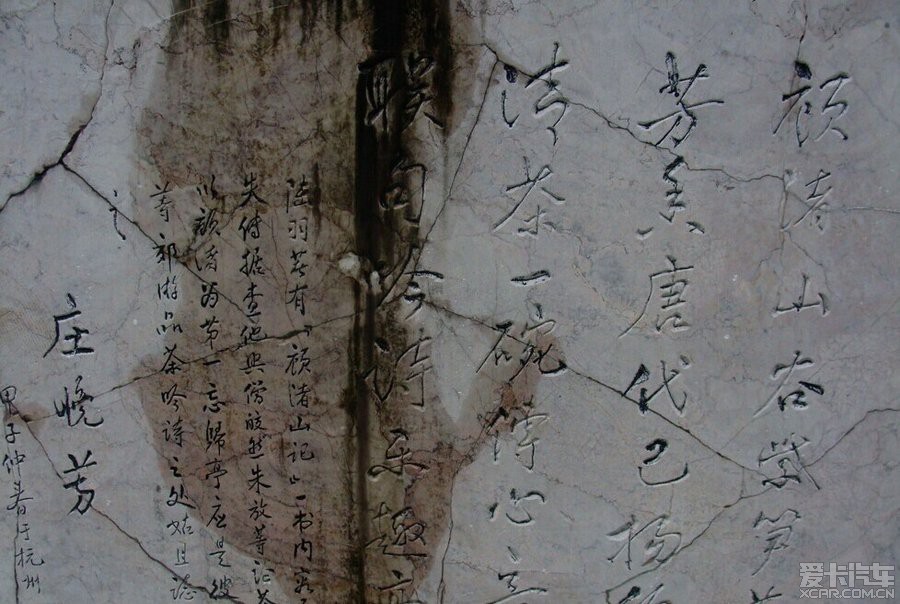 顾渚山谷紫笋
芳香唐代已扬
清茶一碗传心意
联句吟诗乐趣
陆羽著有『顾渚山记』一书内容
失传据查他与僧皎然朱放等论茶
以顾渚为第一忘归亭应是彼
等郊游品茶吟诗之处姑且
之
庄晚芳
甲子仲春于杭州
爱卡汽车
XCAR.COM.CN